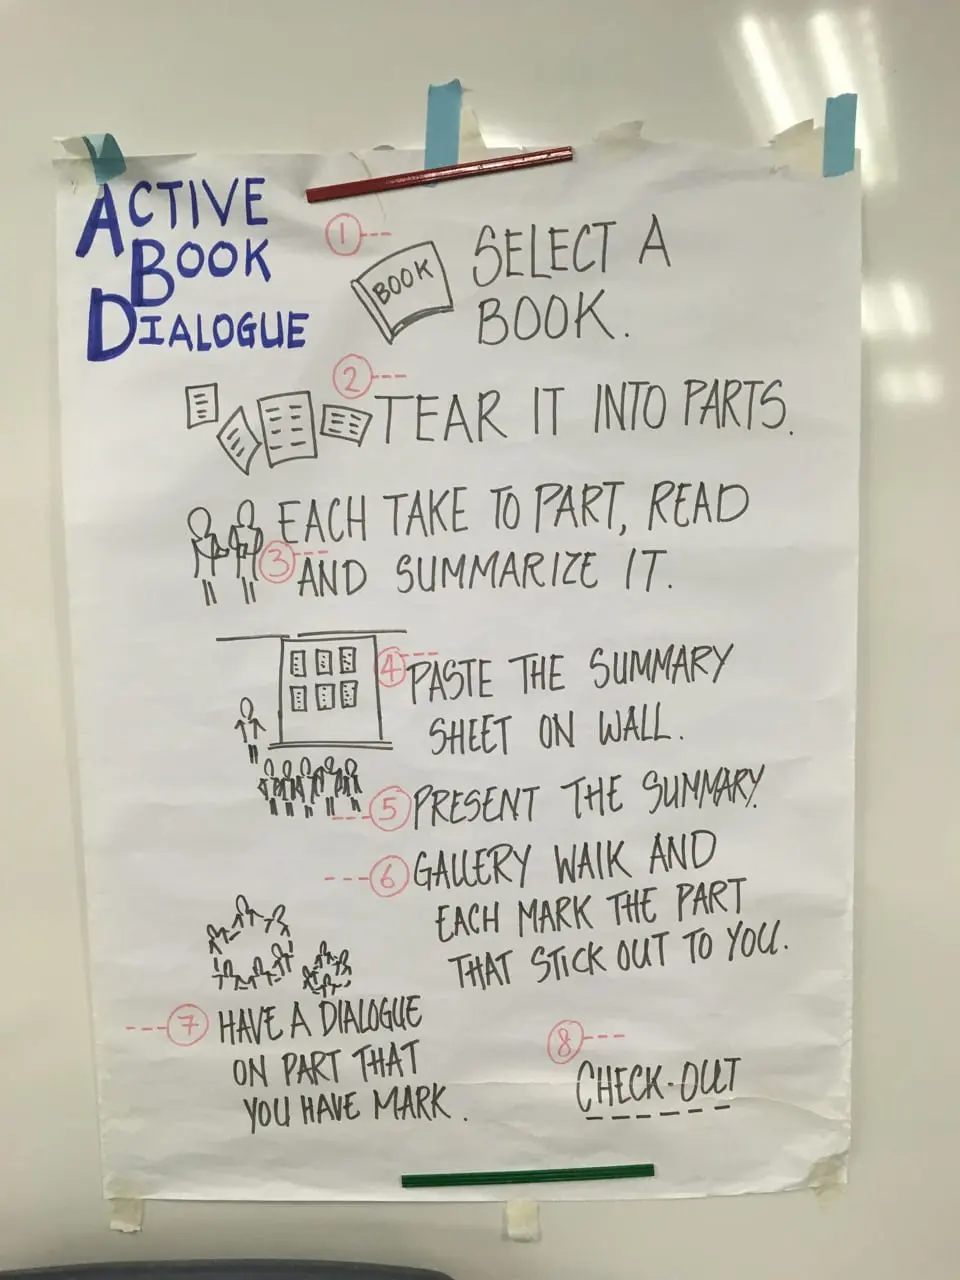 ACTIVE
BOOK
DIALOGUE
1
BOOK
SELECT A
BOOK.
2
TEAR IT INTO PARTS.
3
EACH TAKE TO PART, READ
AND SUMMARIZE IT.
4
PASTE THE SUMMARY
SHEET ON WALL.
5
PRESENT THE SUMMARY.
6
GALLERY WALK AND
EACH MARK THE PART
THAT STICK OUT TO YOU.
7
HAVE A DIALOGUE
ON PART THAT
YOU HAVE MARK.
8
CHECK-OUT